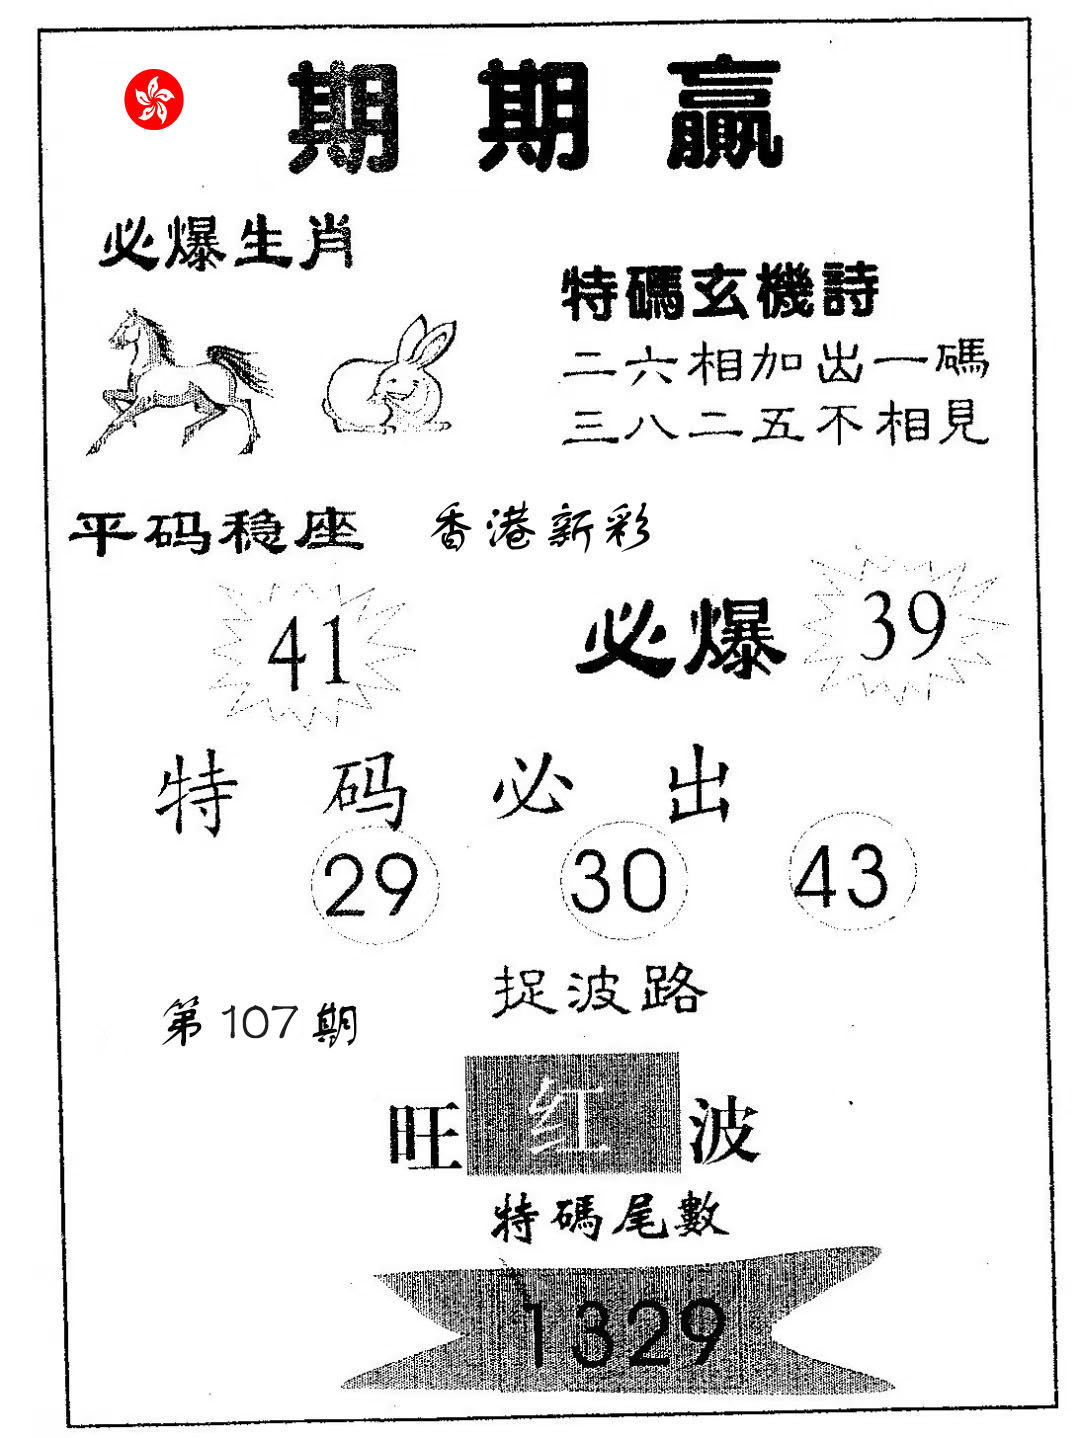 期期赢
必爆生肖
特碼玄機詩
二六相加出一碼
三八二五不相見
平码稳座
香港新彩
41
必爆
39
特码必出
29
30
43
捉波路
第107期
旺红波
特碼尾數
1329